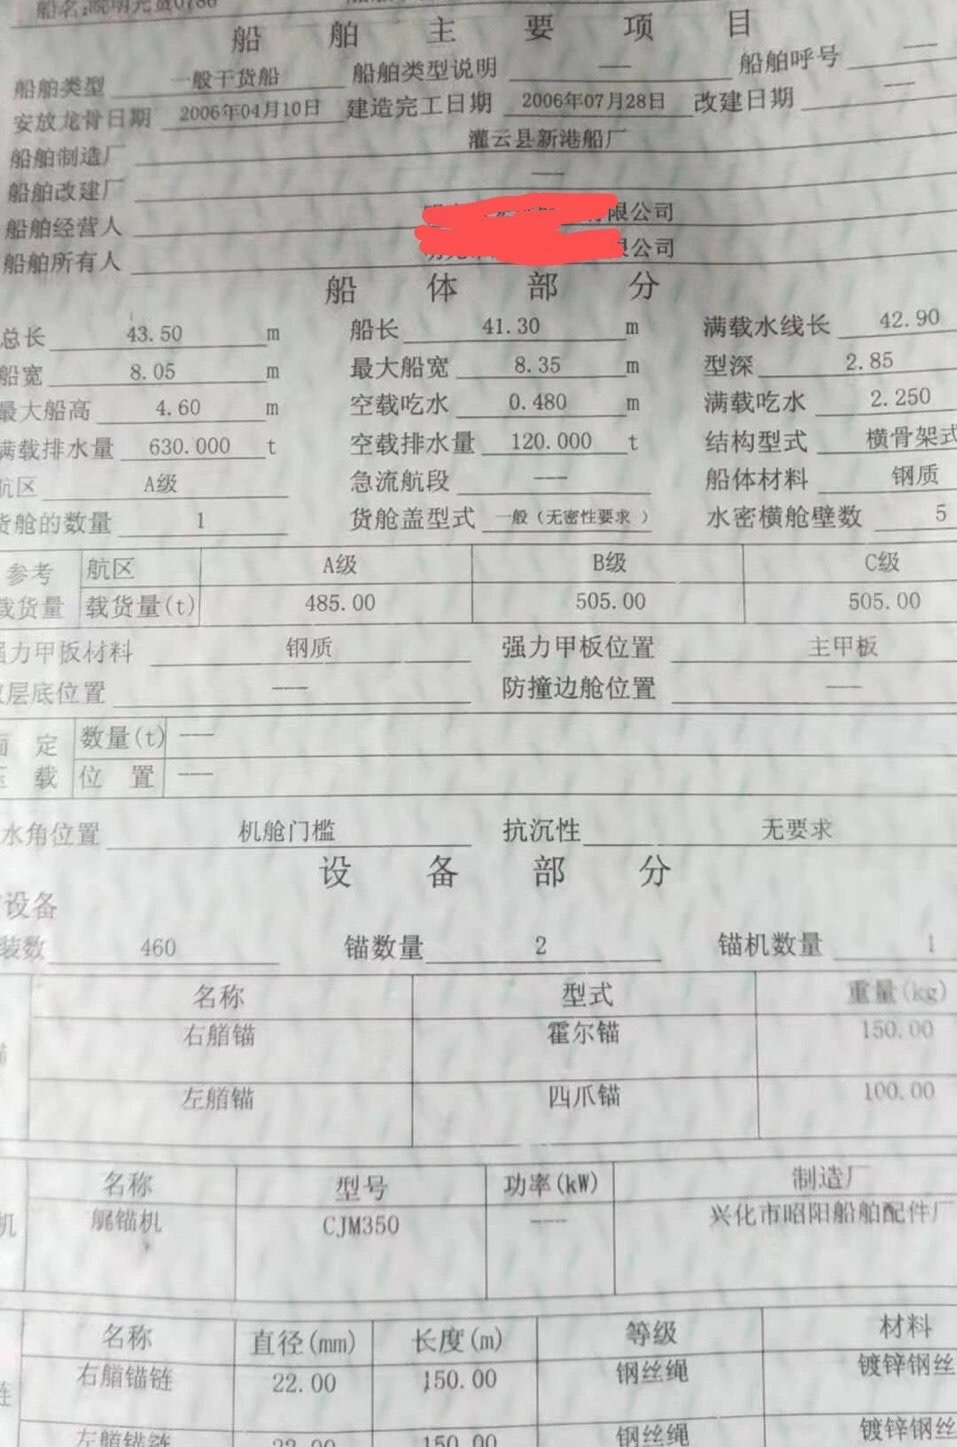 船名:皖明光货0786
船 舶 主 要 项 目
船舶类型 一般干货船 船舶类型说明 —— 船舶呼号 ——
安放龙骨日期 2006年04月10日 建造完工日期 2006年07月28日 改建日期 ——
船舶制造厂 灌云县新港船厂
船舶改建厂 ——
船舶经营人 有限公司
船舶所有人 限公司
船 体 部 分
总长 43.50 m 船长 41.30 m 满载水线长 42.90
船宽 8.05 m 最大船宽 8.35 m 型深 2.85
最大船高 4.60 m 空载吃水 0.480 m 满载吃水 2.250
满载排水量 630.000 t 空载排水量 120.000 t 结构型式 横骨架式
航区 A级 急流航段 —— 船体材料 钢质
货舱的数量 1 货舱盖型式 一般（无密性要求 ） 水密横舱壁数 5
参考 航区 A级 B级 C级
载货量 载货量(t) 485.00 505.00 505.00
强力甲板材料 钢质 强力甲板位置 主甲板
层底位置 —— 防撞边舱位置 ——
定 数量(t) ——
载 位 置 ——
水角位置 机舱门槛 抗沉性 无要求
设 备 部 分
设备
装数 460 锚数量 2 锚机数量 1
名称 型式 重量(kg)
锚 右艏锚 霍尔锚 150.00
左艏锚 四爪锚 100.00
名称 型号 功率(kW) 制造厂
机 艉锚机 CJM350 —— 兴化市昭阳船舶配件厂
名称 直径(mm) 长度(m) 等级 材料
链 右艏锚链 22.00 150.00 钢丝绳 镀锌钢丝
左艏锚链 22.00 150.00 钢丝绳 镀锌钢丝